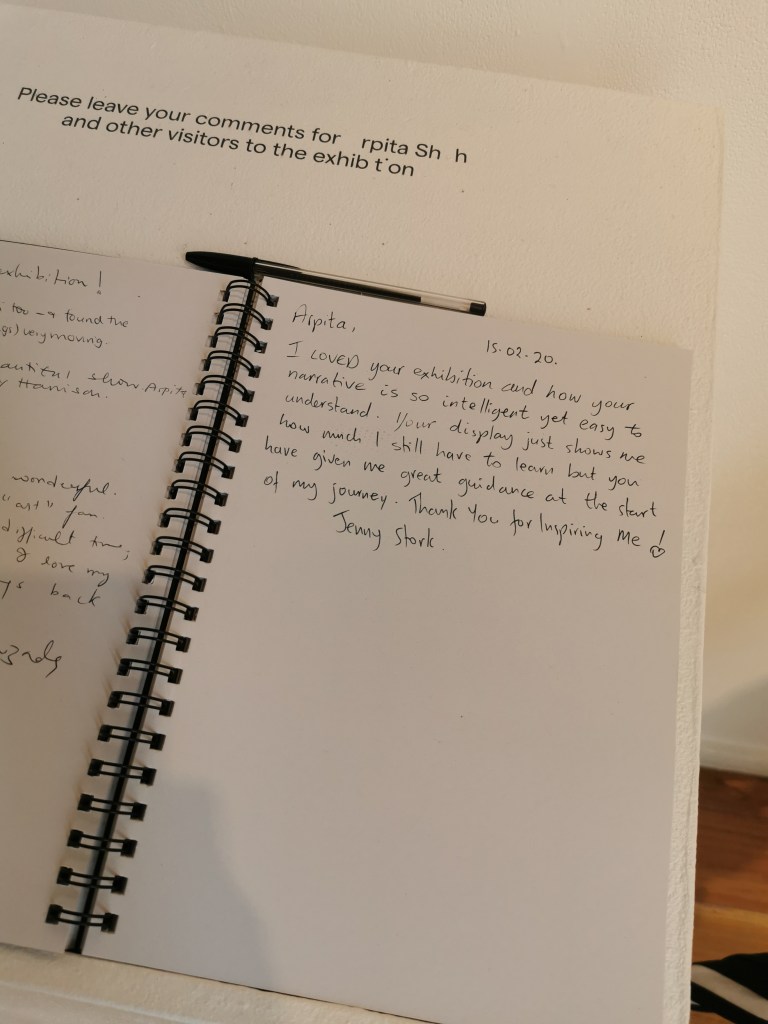 Please leave your comments for rpita Sh h
and other visitors to the exhib t on
exhibition !
too - I found the
very moving.
show Arpita
Harrison.
wonderful.
"art" fan.
difficult time,
I love my
back
Arpita,
15.02.20.
I LOVED your exhibition and how your
narrative is so intelligent yet easy to
understand. Your display just shows me
how much I still have to learn but you
have given me great guidance at the start
of my journey. Thank You for Inspiring Me !
Jenny Stork.